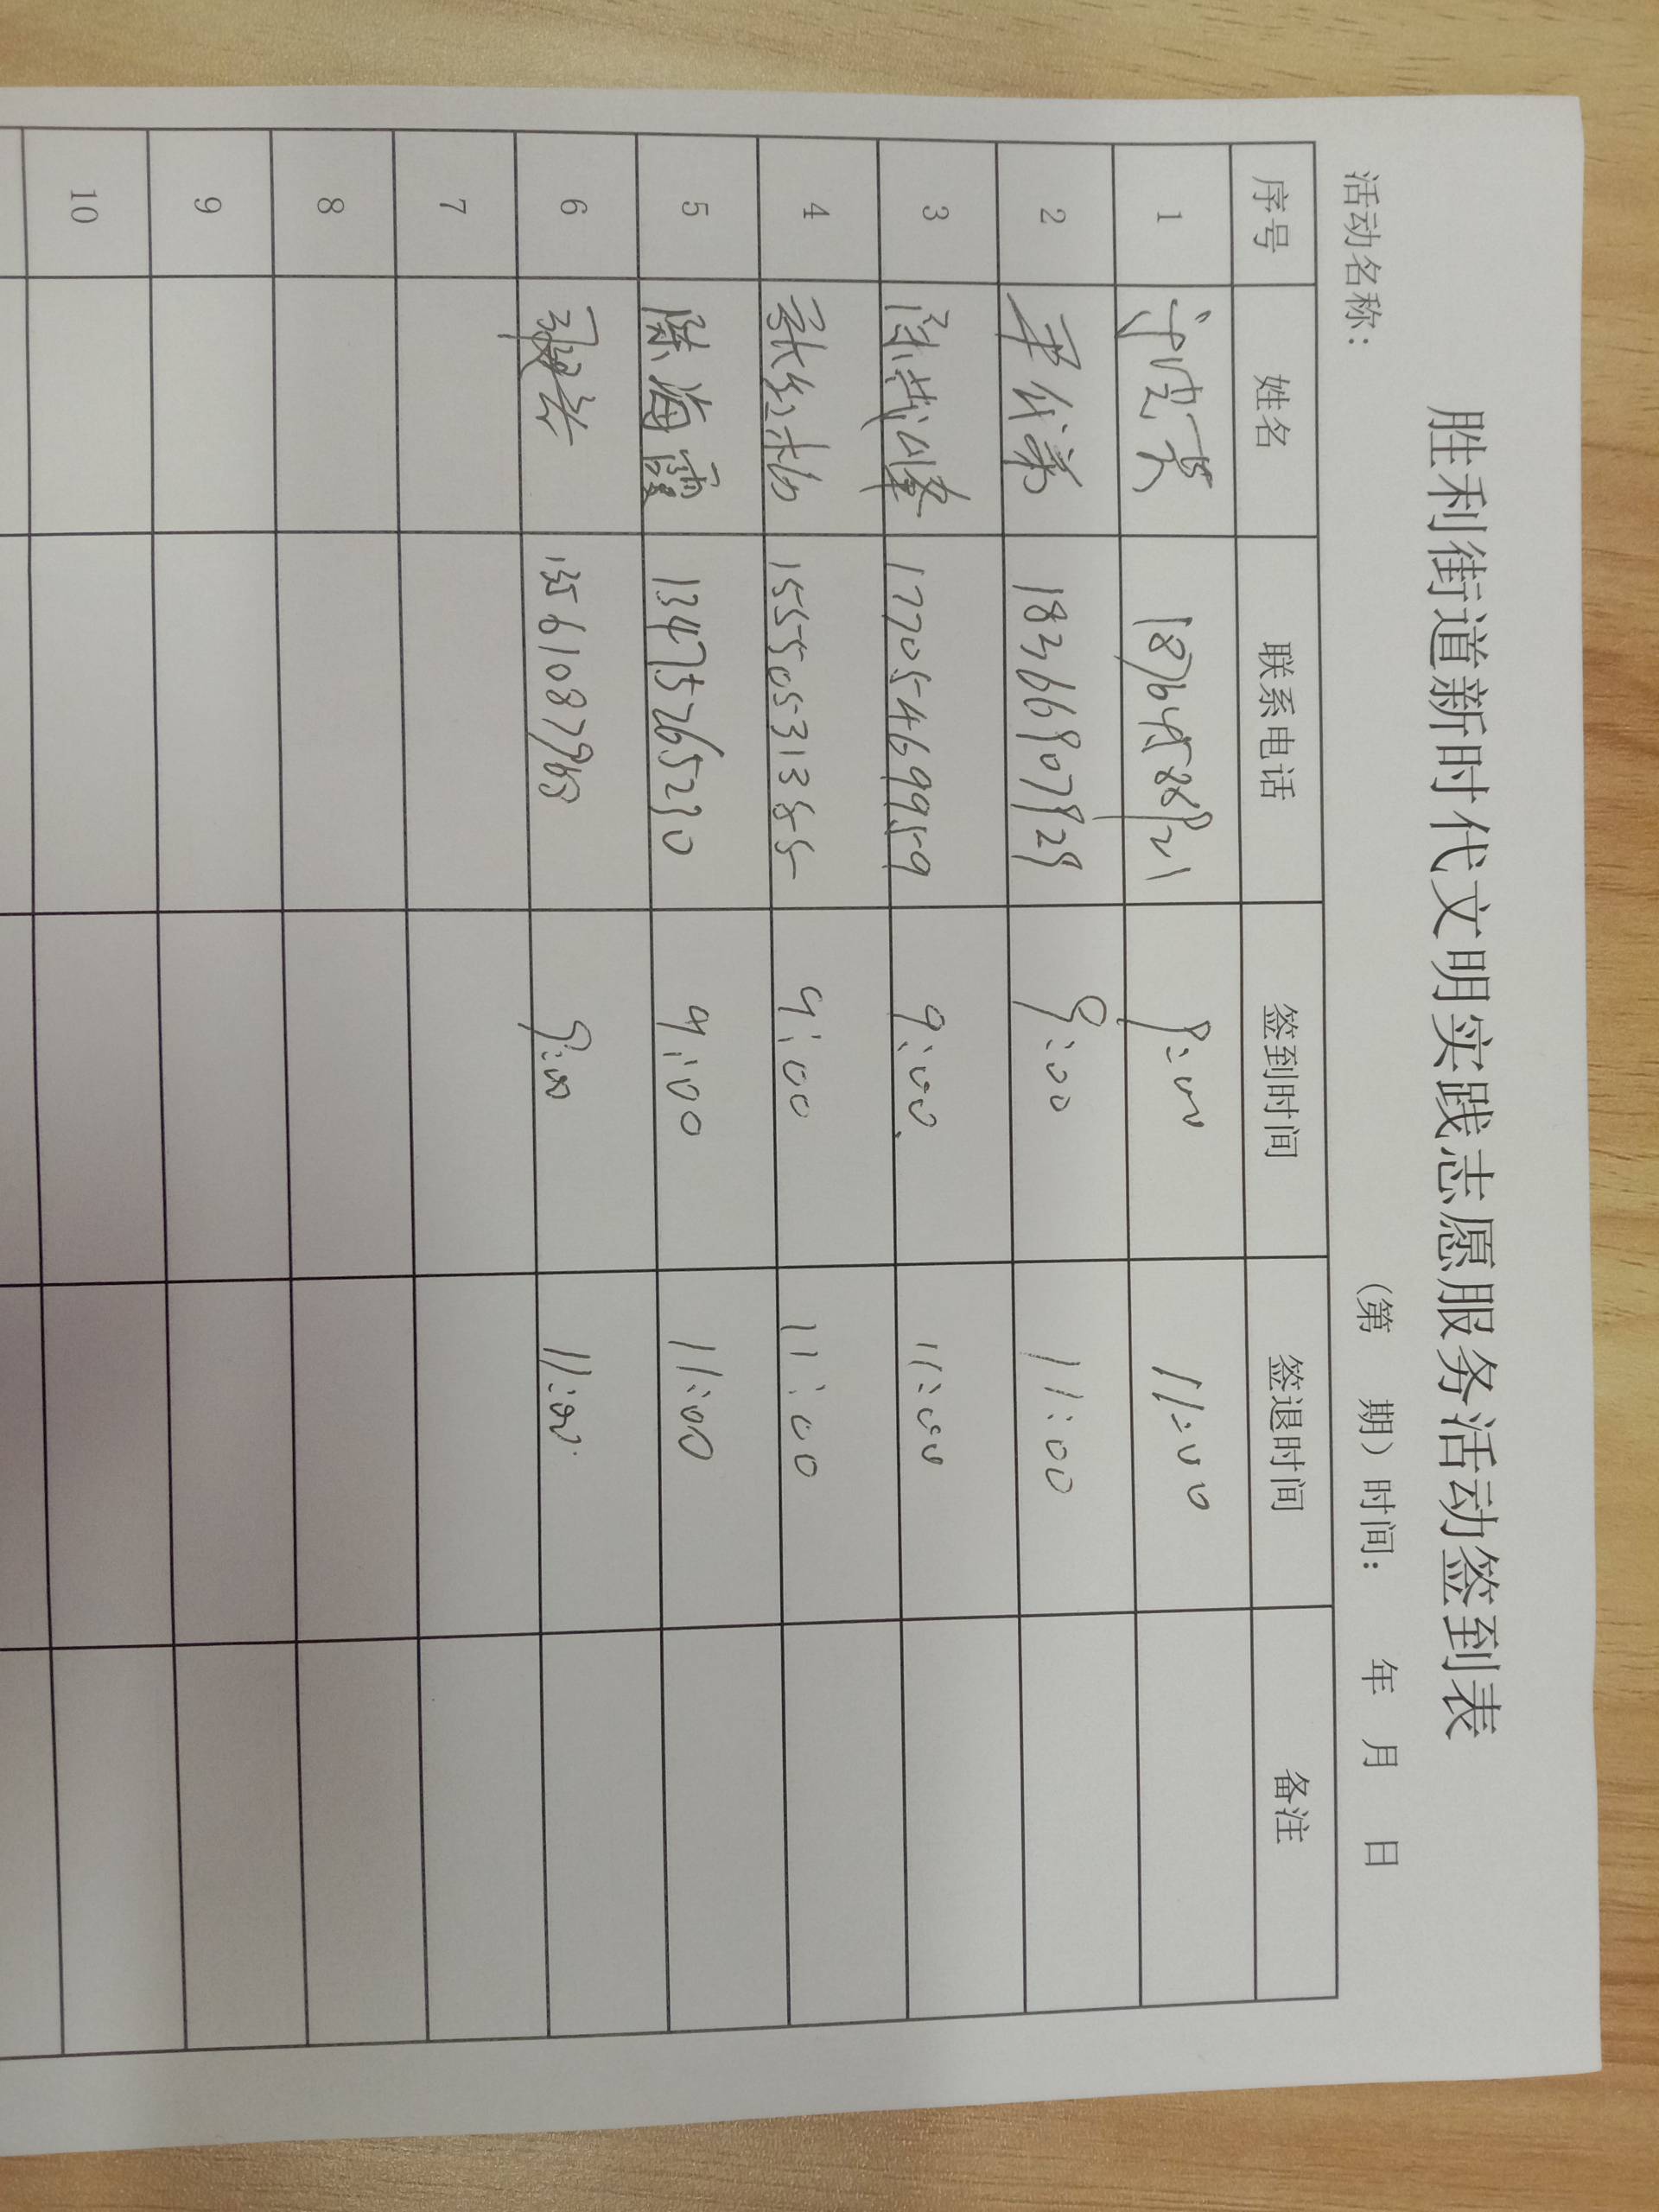 胜利街道新时代文明实践志愿服务活动签到表
活动名称： （第 期）时间： 年 月 日
序号 姓名 联系电话 签到时间 签退时间 备注
1 9:00 11:00
2 18366907929 9:00 11:00
3 17705469959 9:00. 11:00
4 15550531355 9:00 11:00
5 陈海霞 13475265230 9:00 11:00
6 9:00 11:00
7
8
9
10